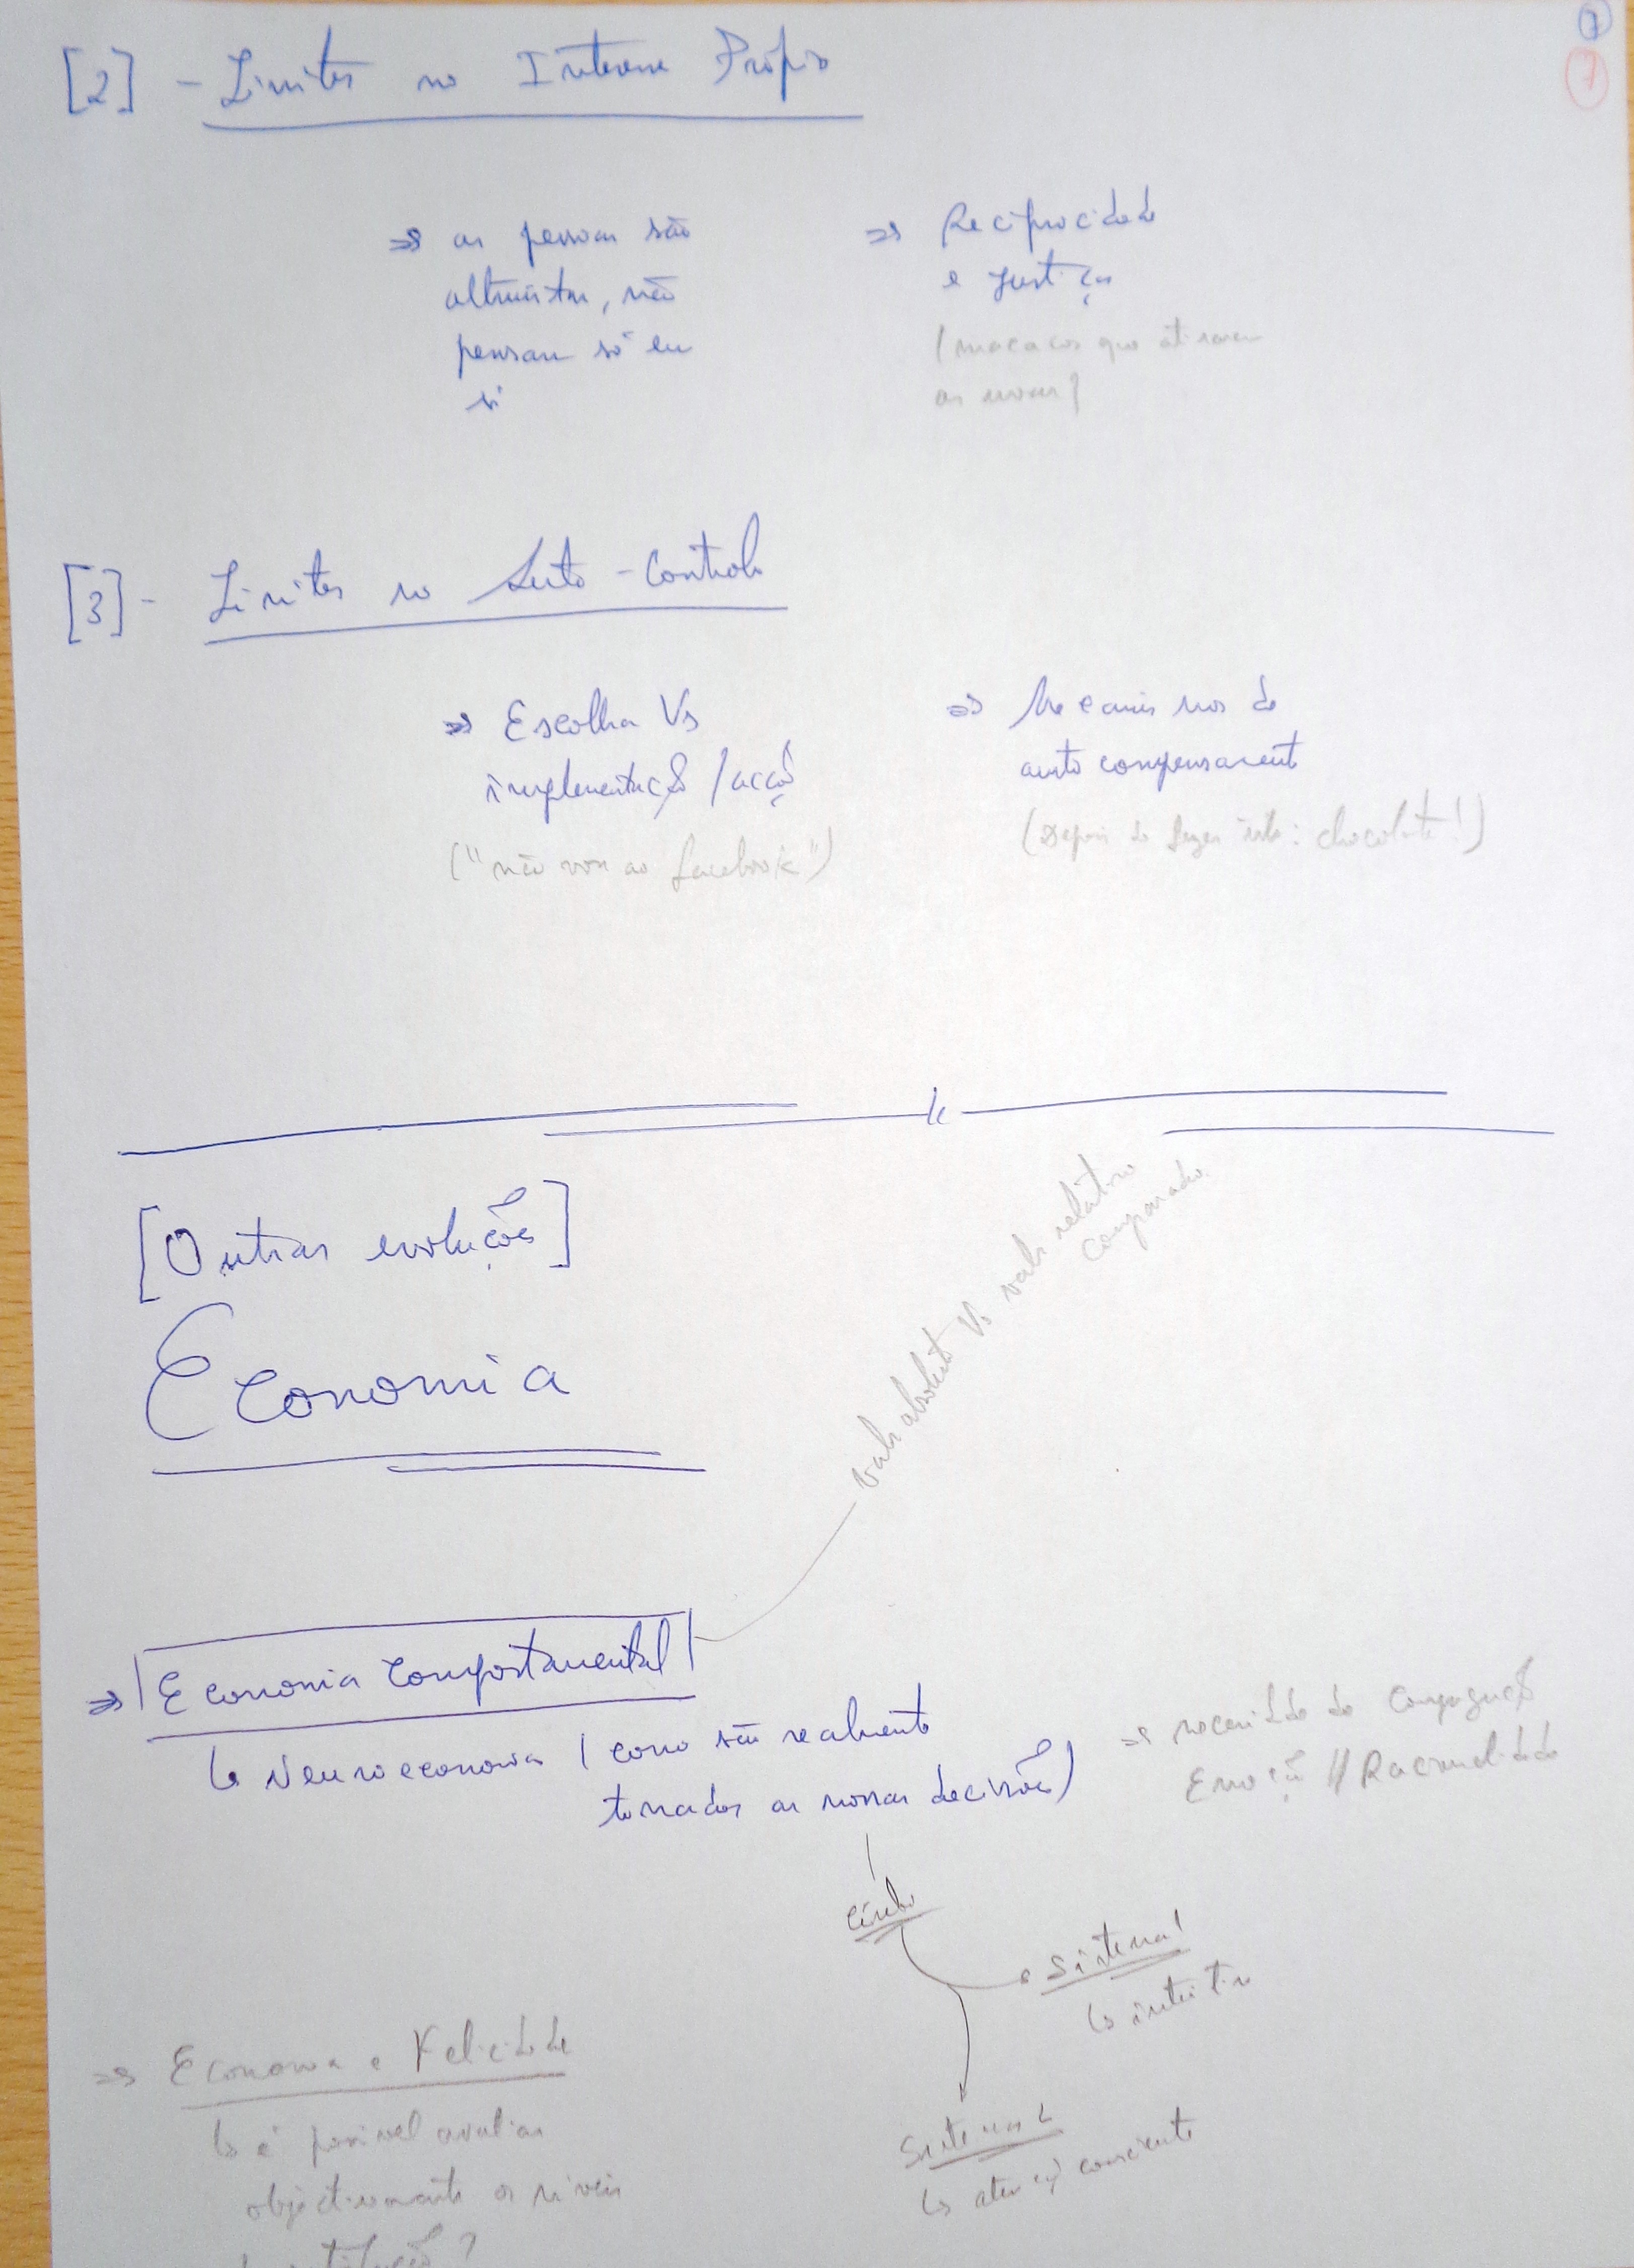 7
7
[2] - Limites no Interesse Próprio
=> as pessoas são
altruístas, não
pensam só em
si
=> Reciprocidade
e justiça
(macacos que atiravam
as uvas)
[3] - Limites no Auto-Controlo
=> Escolha Vs
implementação / acção
("não vou ao facebook")
=> Mecanismos de
auto compensação
(Depois de fazer isto: chocolate!)
[Outras evoluções]
Economia
valor absoluto Vs valor relativo
comparado
=> Economia Comportamental
↳ Neuroeconomia (como são realmente
tomadas as nossas decisões)
=> necessidade de conjugação
Emoção // Racionalidade
Sistema 1
↳ intuitivo
Sistema 2
↳ atenção consciente
=> Economia e Felicidade
↳ é possível avaliar
objectivamente os níveis
de satisfação?